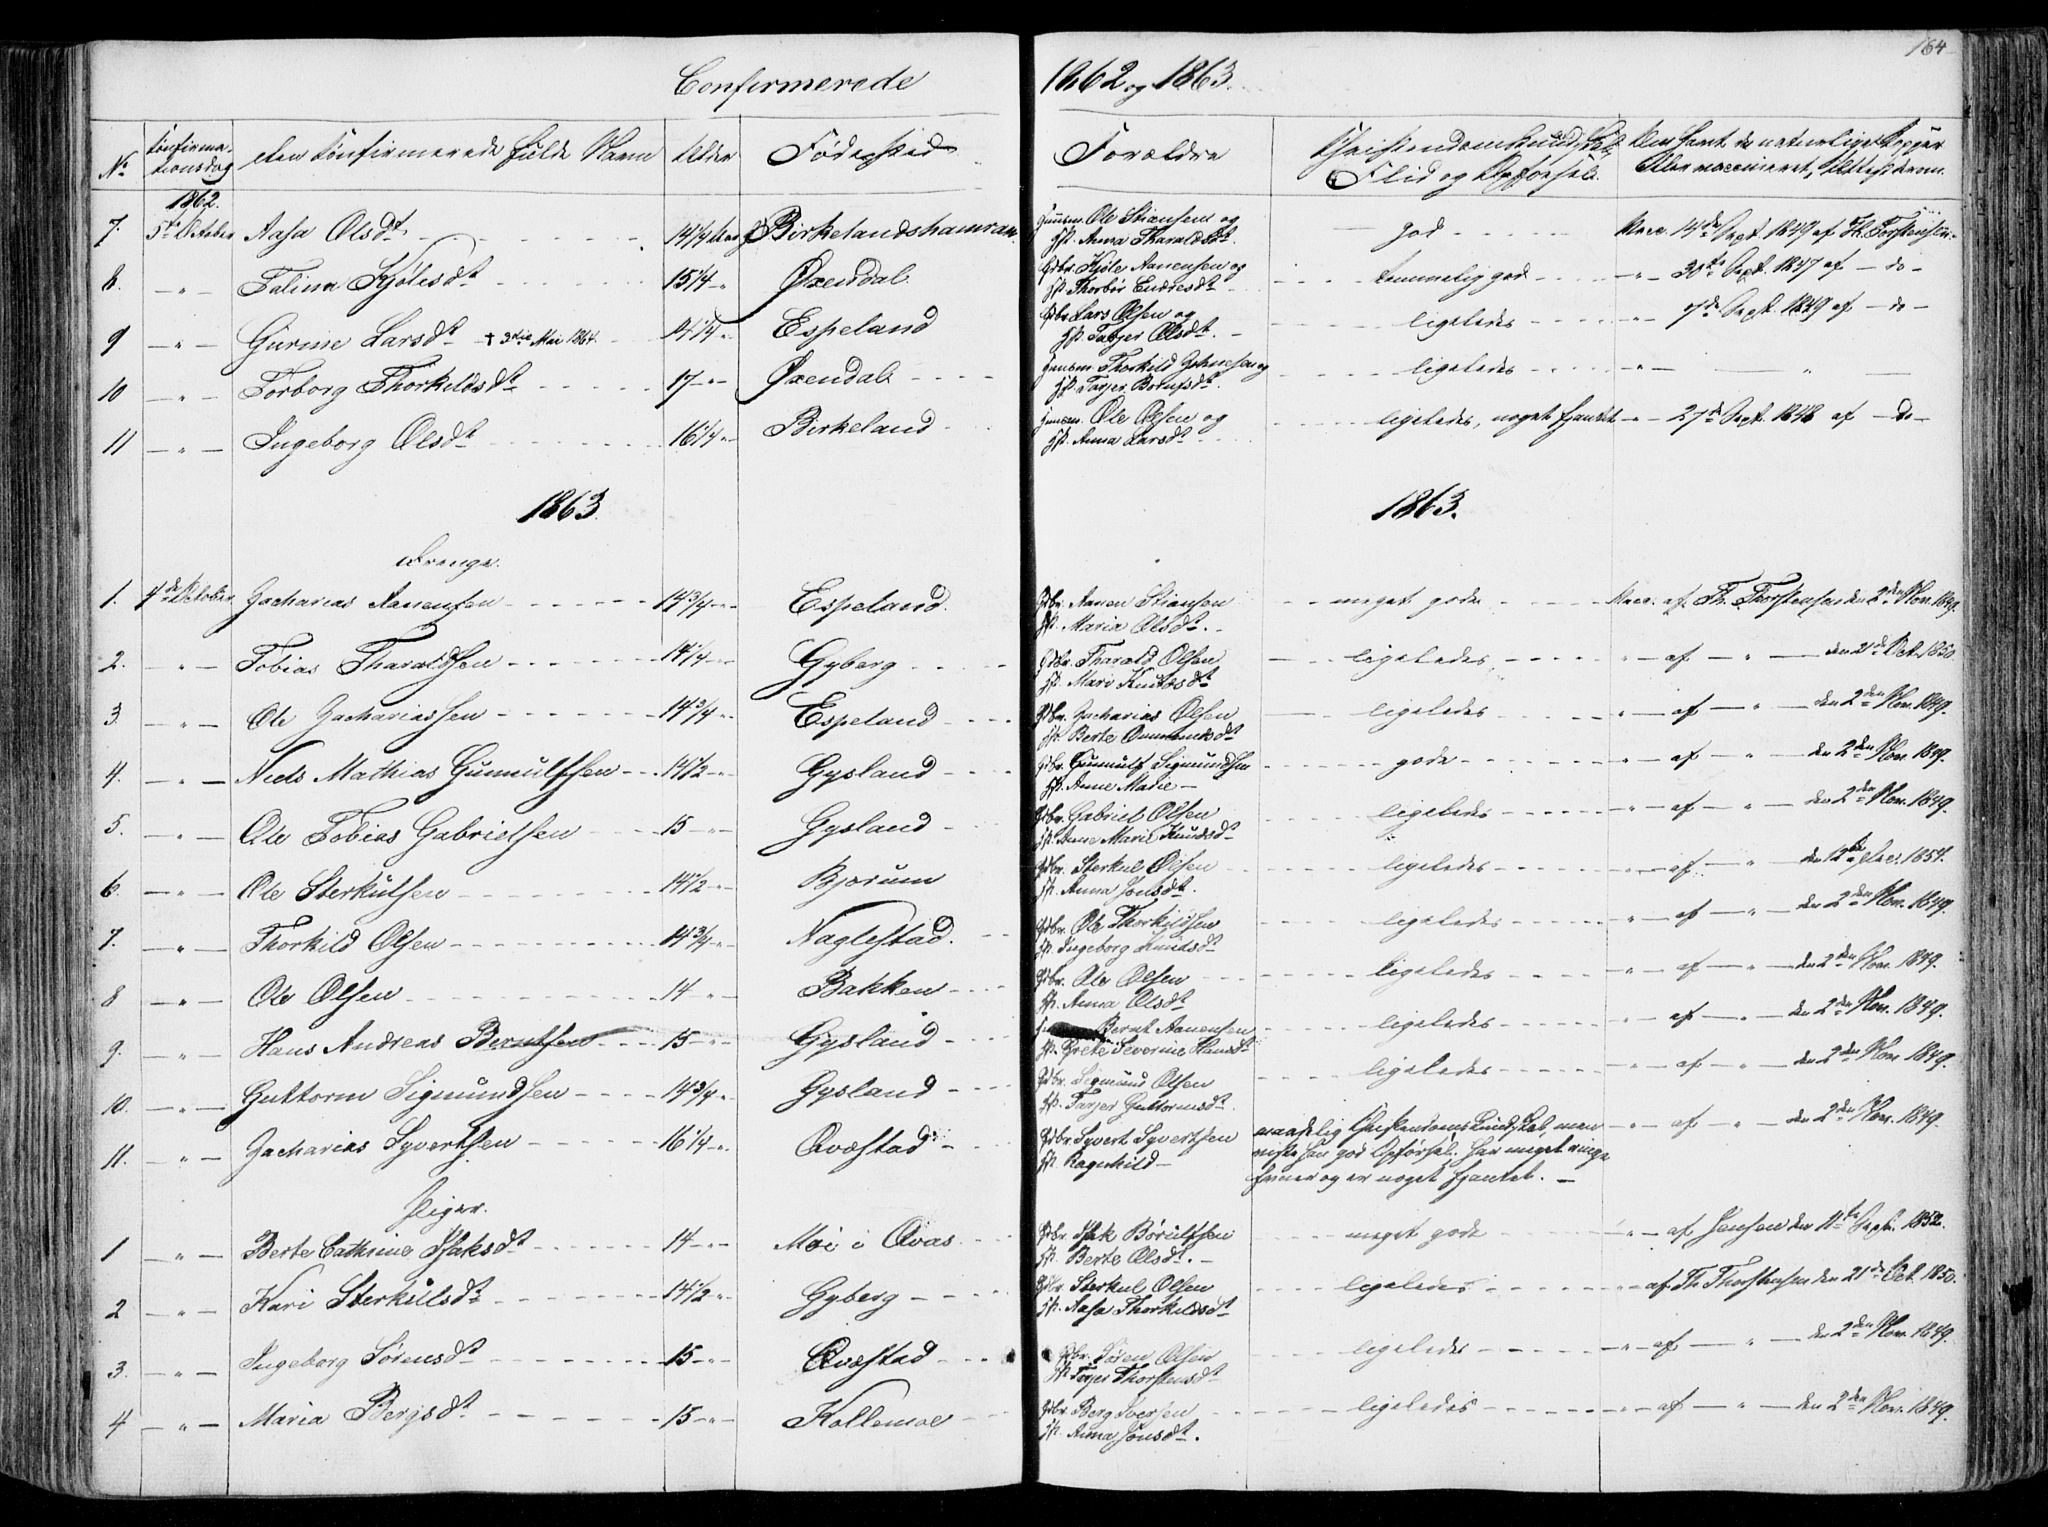 164
Confirmerede 1862 og 1863.
No Konfirmationsdag Den Konfirmeredes fulde Navn Alder Fødested Forældre Christendomskundskab, Flid og Opførsel. Om havt de naturlige Kopper eller vaccineret, Attest derom.
1862.
7. 5te October Aasa Olsdt. 14 1/4 Aar Birkelandshamran Huusm. Ole Stiansen og Hst. Anna Tharaldsdt. god Vacc. 14de Sept. 1849 af Th. Torstensen
8. " Talina Kjølisdt 15 1/4 " Øxendal Gdbr. Kjøle Aanensen og Hst. Thorbør Endresdt temmelig gode " 30te Sept. 1847 af - do -
9 " Gurine Larsdt + 3die Mai 1864. 14 1/4 " Espeland Gdbr. Lars Olsen og Hst. Tarjer Olsdt. ligeledes " 7de Sept. 1849 af - do -
10 " Torborg Thorkildsdt 17 " Øxendal Huusm. Thorkild Johnsen og Hst. Tarjer Bolufsdt. ligeledes " "
11 " Ingeborg Olsdt 16 1/4 " Birkeland Huusm. Ole Olsen og Hst. Anna Larsdt ligeledes, noget fjantet " 27de Sept. 1848 af - do -
1863. 1863.
Drenge.
1. 4de October Zacharias Aanensen 14 3/4 " Espeland. Gdbr. Aanen Stiansen Hst. Maria Olsdt. meget gode Vacc. af Th. Torstensen den 2den Nov. 1849.
2. " Tobias Tharaldsen 14 1/4 " Gyberg Gdbr. Tharald Olsen Hst. Mari Knudsdt ligeledes " af " den 21de Oct. 1850
3. " Ole Zachariassen 14 3/4 " Espeland Gdbr. Zacharias Olsen Hst. Berte Ommundsdt ligeledes " af " den 2den Nov. 1849.
4. " Niels Mathias Gunnulfsen 14 1/2 " Gysland Gdbr. Gunnulf Sigmundsen Hst. Anne Marie gode " af " den 2den Nov. 1849.
5. " Ole Tobias Gabrielsen 15 " Gysland Gdbr. Gabriel Olsen Hst. Anne Marie Knudsdt ligeledes " af " den 2den Nov. 1849.
6. " Ole Sterkulsen 14 1/2 " Bjørum Gdbr. Sterkul Olsen Hst. Anna Jonsdt. ligeledes " af " den 12te Dec. 1851.
7. " Thorkild Olsen 14 3/4 " Naglestad. Gdbr. Ole Thorkildsen Hst. Ingeborg Knudsdt ligeledes " af " den 2den Nov. 1849.
8 " Ole Olsen 14 " Bakken Gdbr. Ole Olsen Hst. Anna Olsdt ligeledes " af " den 2den Nov. 1849.
9. " Hans Andreas Berntsen 15 " Gysland Bernt Aanensen Hst. Grete Severine Hansdt ligeledes " af " den 2den Nov. 1849.
10. " Guttorm Sigmundsen 14 3/4 " Gysland Gdbr. Sigmund Olsen Hst. Tarjer Guttormsdt. ligeledes " af " den 2den Nov. 1849.
11. " Zacharias Syvertsen 16 1/4 " Qvæstad Gdbr. Syvert Syvertsen Hst. Ragnhild maadelig Christendomskundskab, men viste sen god Opførsel. Har meget ringe Evner og er noget fjantet. " af " den 2den Nov. 1849.
Piger.
1 " Berte Cathrine Isaksdt 14 " Moi i Qvas Gdbr. Isak Børulfsen Hst. Berte Olsdt. meget gode " af Jensen den 11te Sept. 1852.
2 " Kari Sterkulsdt 14 1/2 " Gyberg Gdbr. Sterkul Olsen Hst. Aasa Thorkildsdt ligeledes " af Th. Thorstensen den 21de Oct. 1850.
3. " Ingeborg Sørensdt 15 " Qvæstad Gdbr. Søren Olsen Hst. Tarjer Thorstensdt ligeledes " af " den 2den Nov. 1849.
4 " Maria Bergsdt 15 " Kollemoe Gdbr. Berg Iversen Hst. Anna Jonsdt. ligeledes " af " den 2den Nov. 1849.